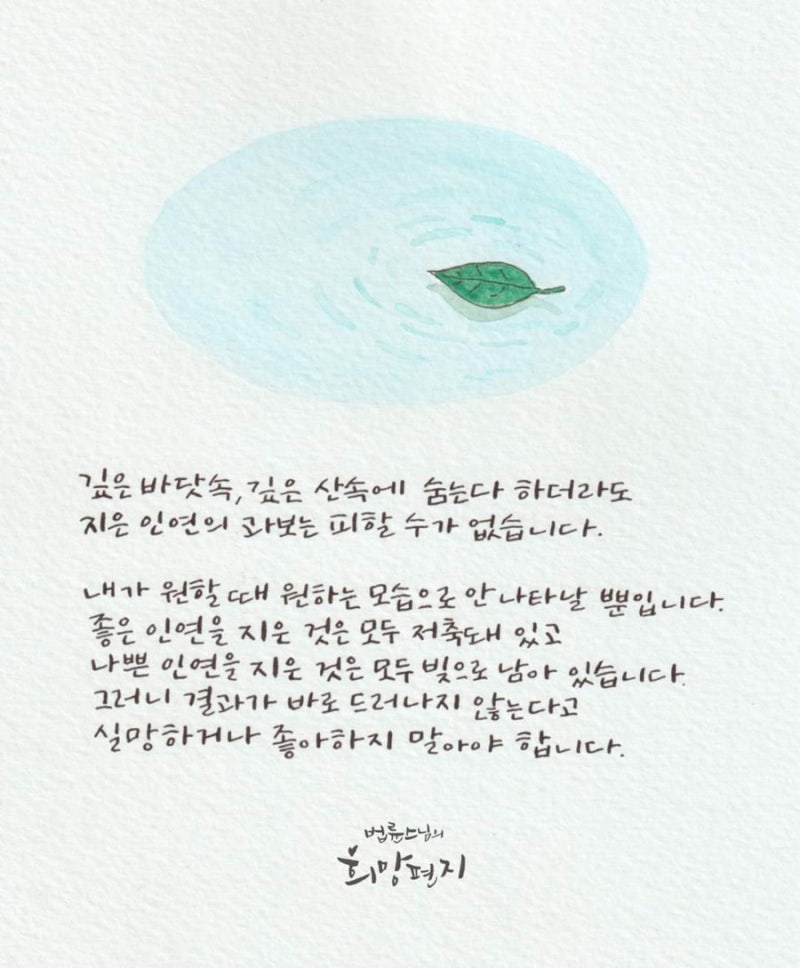 깊은 바닷속, 깊은 산속에 숨는다 하더라도
지은 인연의 과보는 피할 수가 없습니다.
내가 원할 때 원하는 모습으로 안 나타날 뿐입니다.
좋은 인연을 지은 것은 모두 저축돼 있고
나쁜 인연을 지은 것은 모두 빚으로 남아 있습니다.
그러니 결과가 바로 드러나지 않는다고
실망하거나 좋아하지 말아야 합니다.
법륜스님의
희망편지